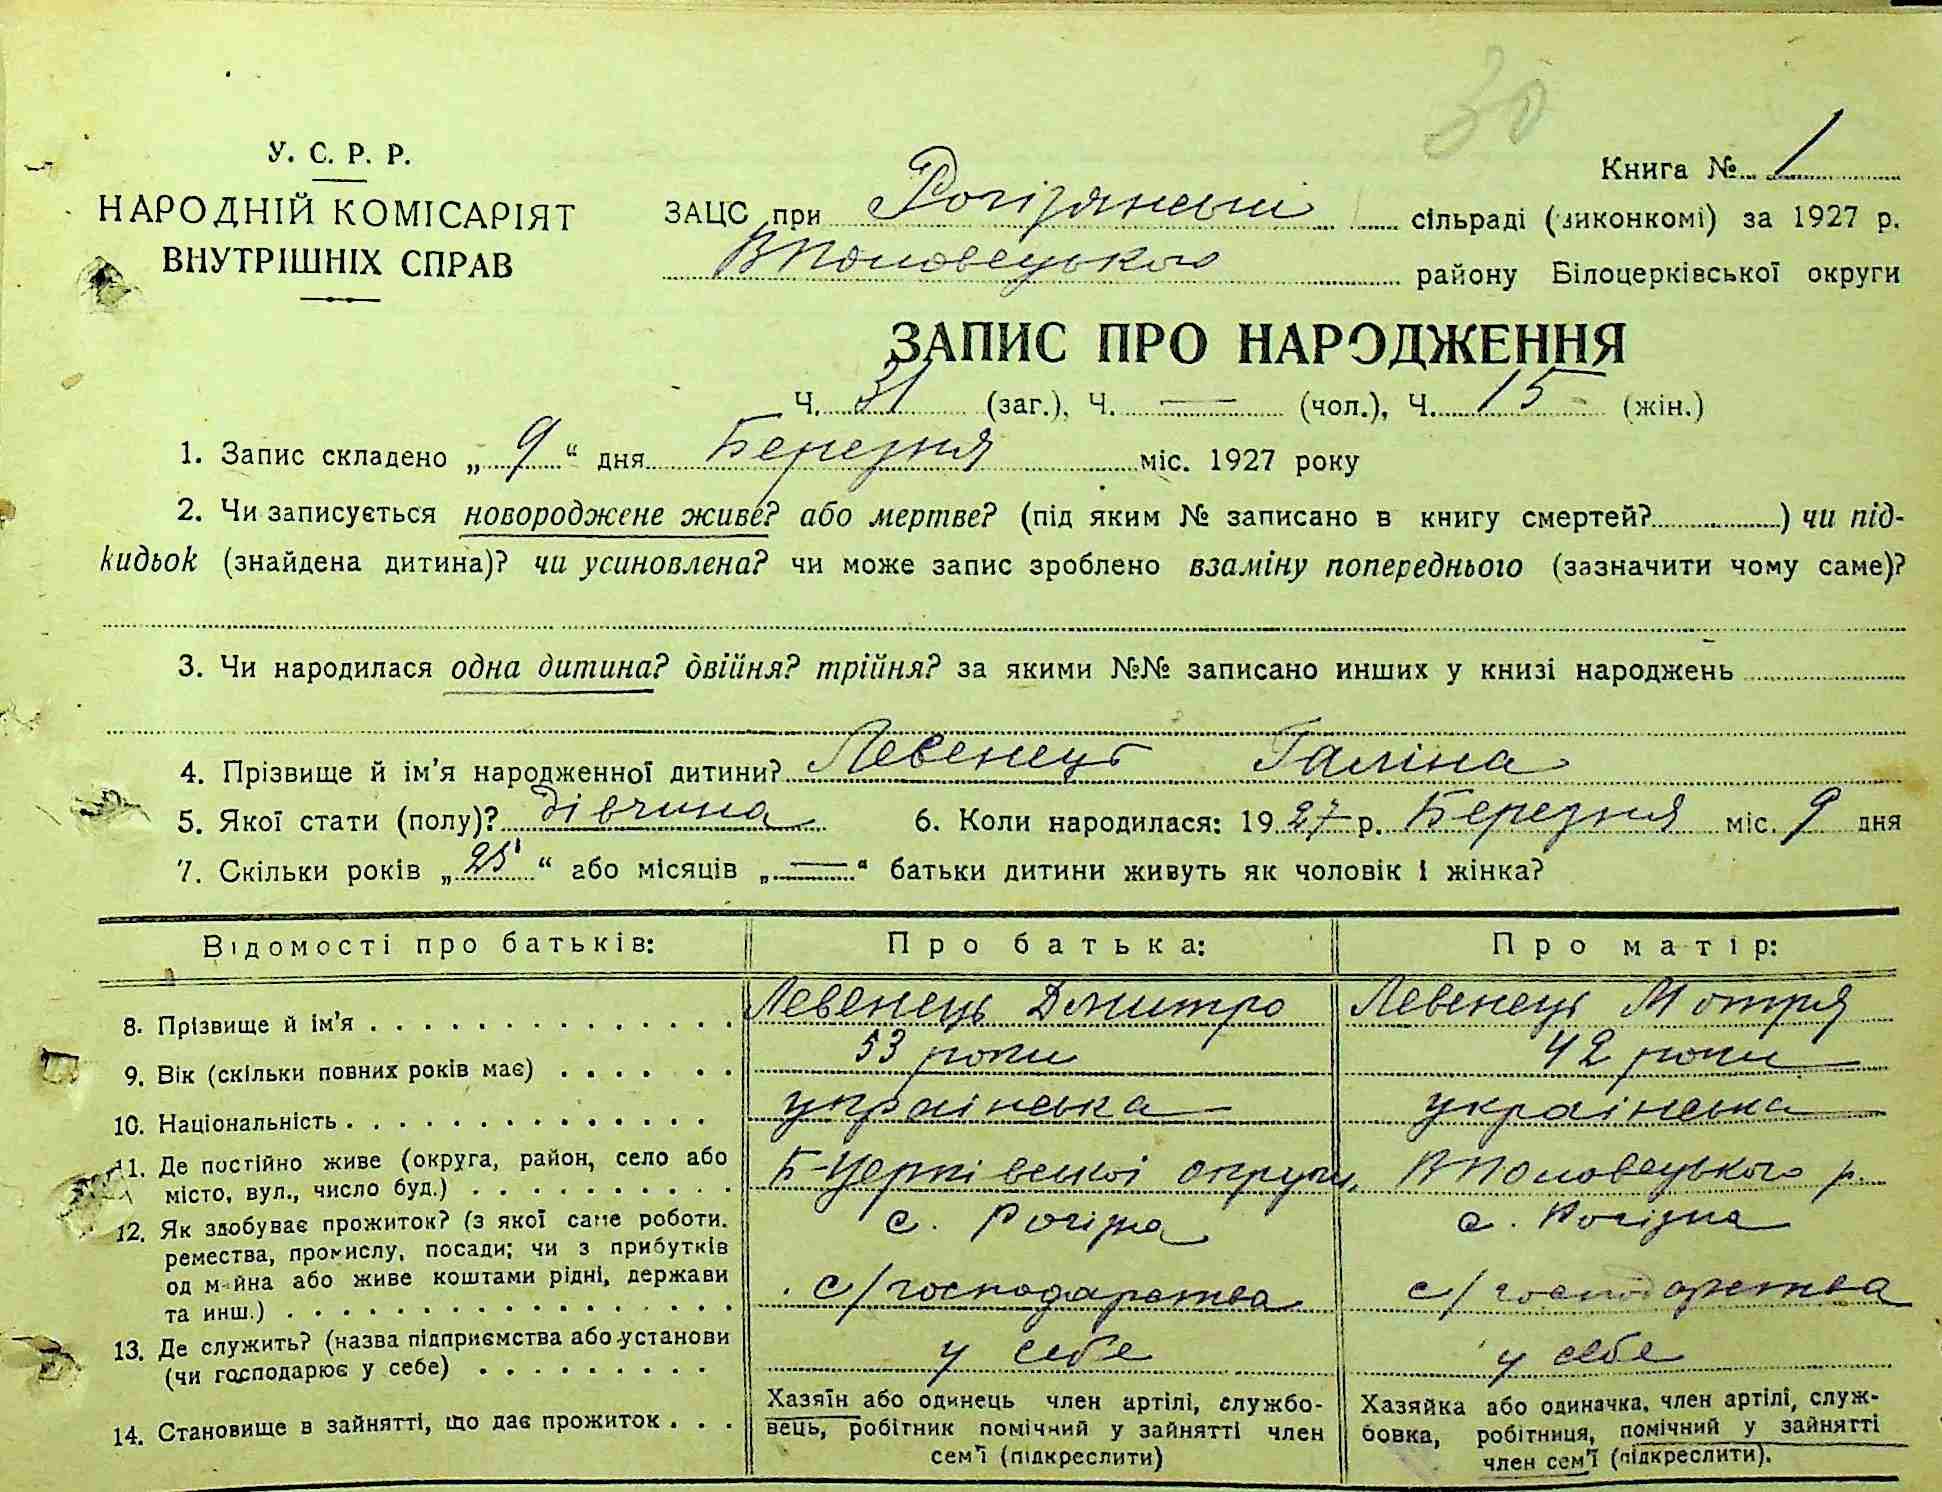 30
У. С. Р. Р.
НАРОДНІЙ КОМІСАРІЯТ
ВНУТРІШНІХ СПРАВ
Книга № 1
ЗАЦС при Рогізянській сільраді (виконкомі) за 1927 р.
ВПоловецького району Білоцерківської округи
ЗАПИС ПРО НАРОДЖЕННЯ
Ч. 31 (заг.), Ч. — (чол.), Ч. 15 (жін.)
1. Запис складено „ 9 “ дня Березня міс. 1927 року
2. Чи записується новороджене живе? або мертве? (під яким № записано в книгу смертей? ) чи під-
кидьок (знайдена дитина)? чи усиновлена? чи може запис зроблено взаміну попереднього (зазначити чому саме)?
3. Чи народилася одна дитина? двійня? трійня? за якими №№ записано инших у книзі народжень
4. Прізвище й ім'я народженної дитини? Левенець Галіна
5. Якої стати (полу)? дівчина 6. Коли народилася: 1927 р. Березня міс. 9 дня
7. Скільки років „ 25 “ або місяців „ — “ батьки дитини живуть як чоловік і жінка?
Відомості про батьків: Про батька: Про матір:
8. Прізвище й ім'я Левенець Дмитро Левенець Мотря
9. Вік (скільки повних років має) 53 роки 42 роки
10. Національність українська українська
11. Де постійно живе (округа, район, село або
місто, вул., число буд.) Б-Церківської округи, ВПоловецького р.
с. Рогізна с. Рогізна
12. Як здобуває прожиток? (з якої саме роботи.
ремества, промислу, посади; чи з прибутків
од майна або живе коштами рідні, держави
та инш.) с/господарства с/господарства
13. Де служить? (назва підприємства або установи
(чи господарює у себе) у себе у себе
14. Становище в зайнятті, що дає прожиток
Хазяїн або одинець член артілі, службо-
вець, робітник помічний у зайнятті член
сем'ї (підкреслити)
Хазяйка або одиначка, член артілі, служ-
бовка, робітниця, помічний у зайнятті
член сем'ї (підкреслити).